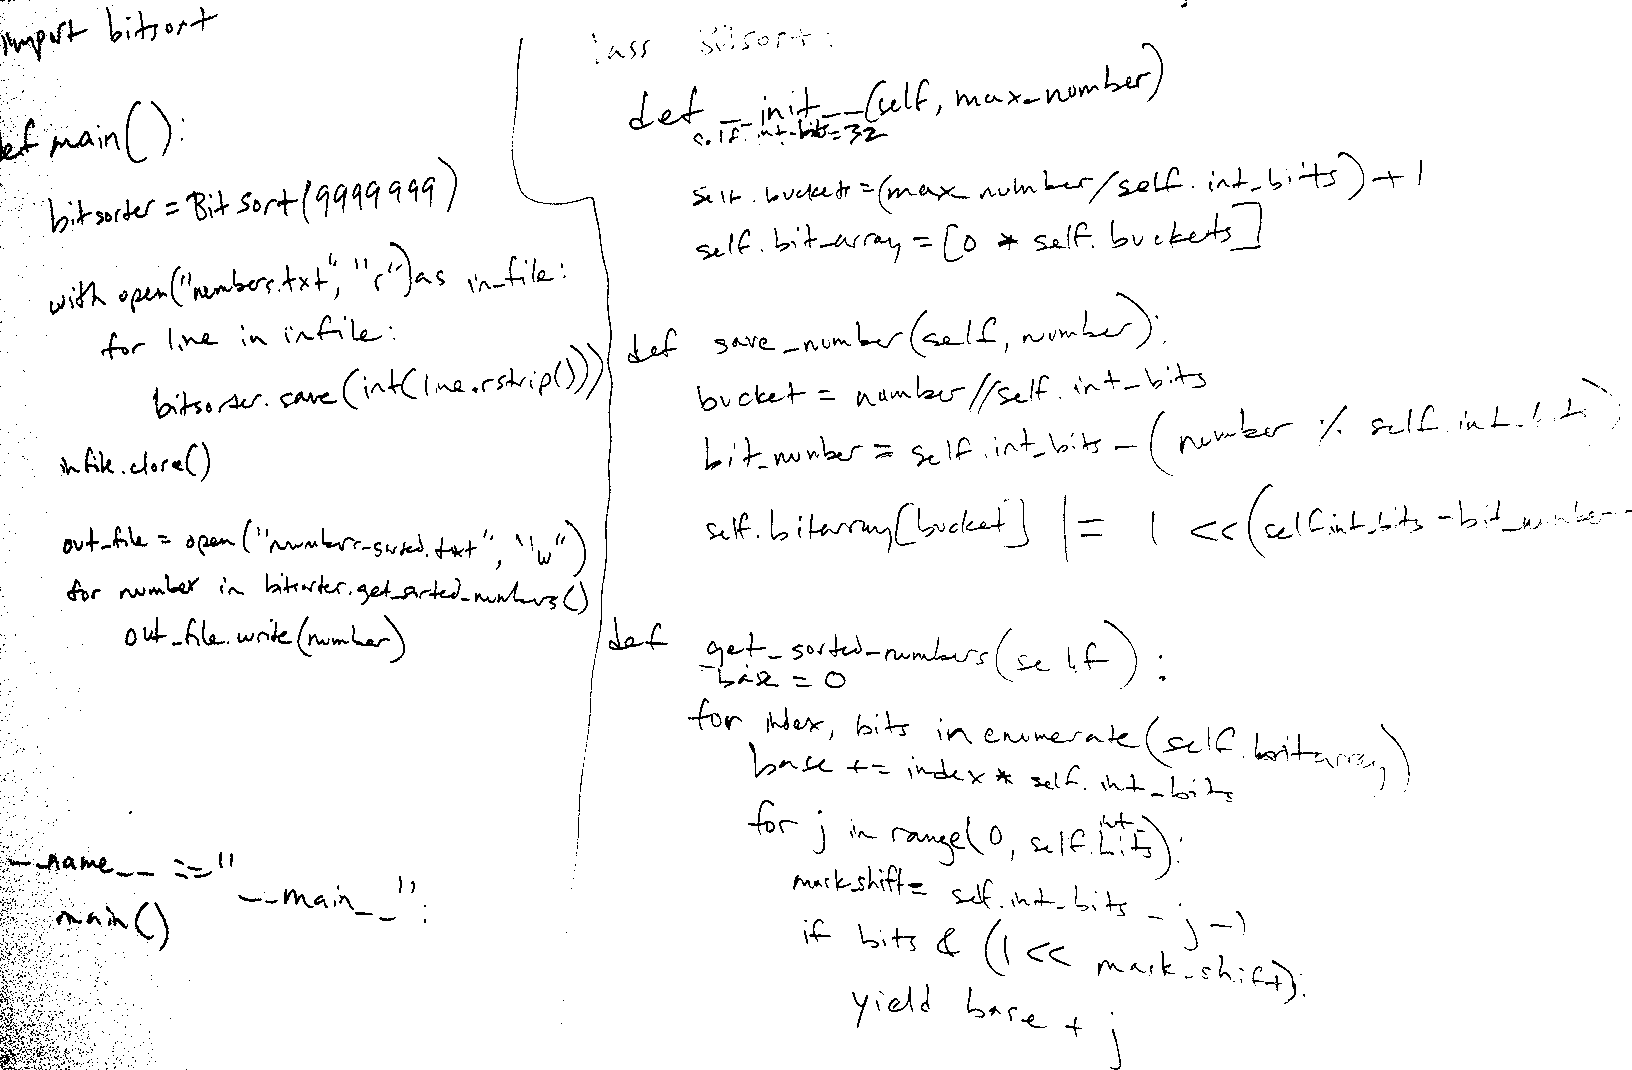 import bitsort
def main():
bitsorter = BitSort(9999999)
with open("numbers.txt", "r") as in_file:
for line in infile:
bitsorter.save(int(line.rstrip()))
infile.close()
out_file = open("numbers-sorted.txt", "w")
for number in bitsorter.get_sorted_numbers()
out_file.write(number)
__name__ == "__main__":
main()
lass Bitsort:
def __init__(self, max_number)
self.int_bits=32
self.buckets=(max_number/self.int_bits)+1
self.bit_array=[0 * self.buckets]
def save_number(self, number):
bucket = number//self.int_bits
bit_number = self.int_bits - (number % self.int_bits)
self.bitarray[bucket] |= 1 <<(self.int_bits - bit_number -
def get_sorted_numbers(self):
base = 0
for index, bits in enumerate(self.bitarray)
base += index * self.int_bits
for j in range(0, self.int_bits):
mark_shift = self.int_bits - j - 1
if bits & (1 << mark_shift):
yield base + j